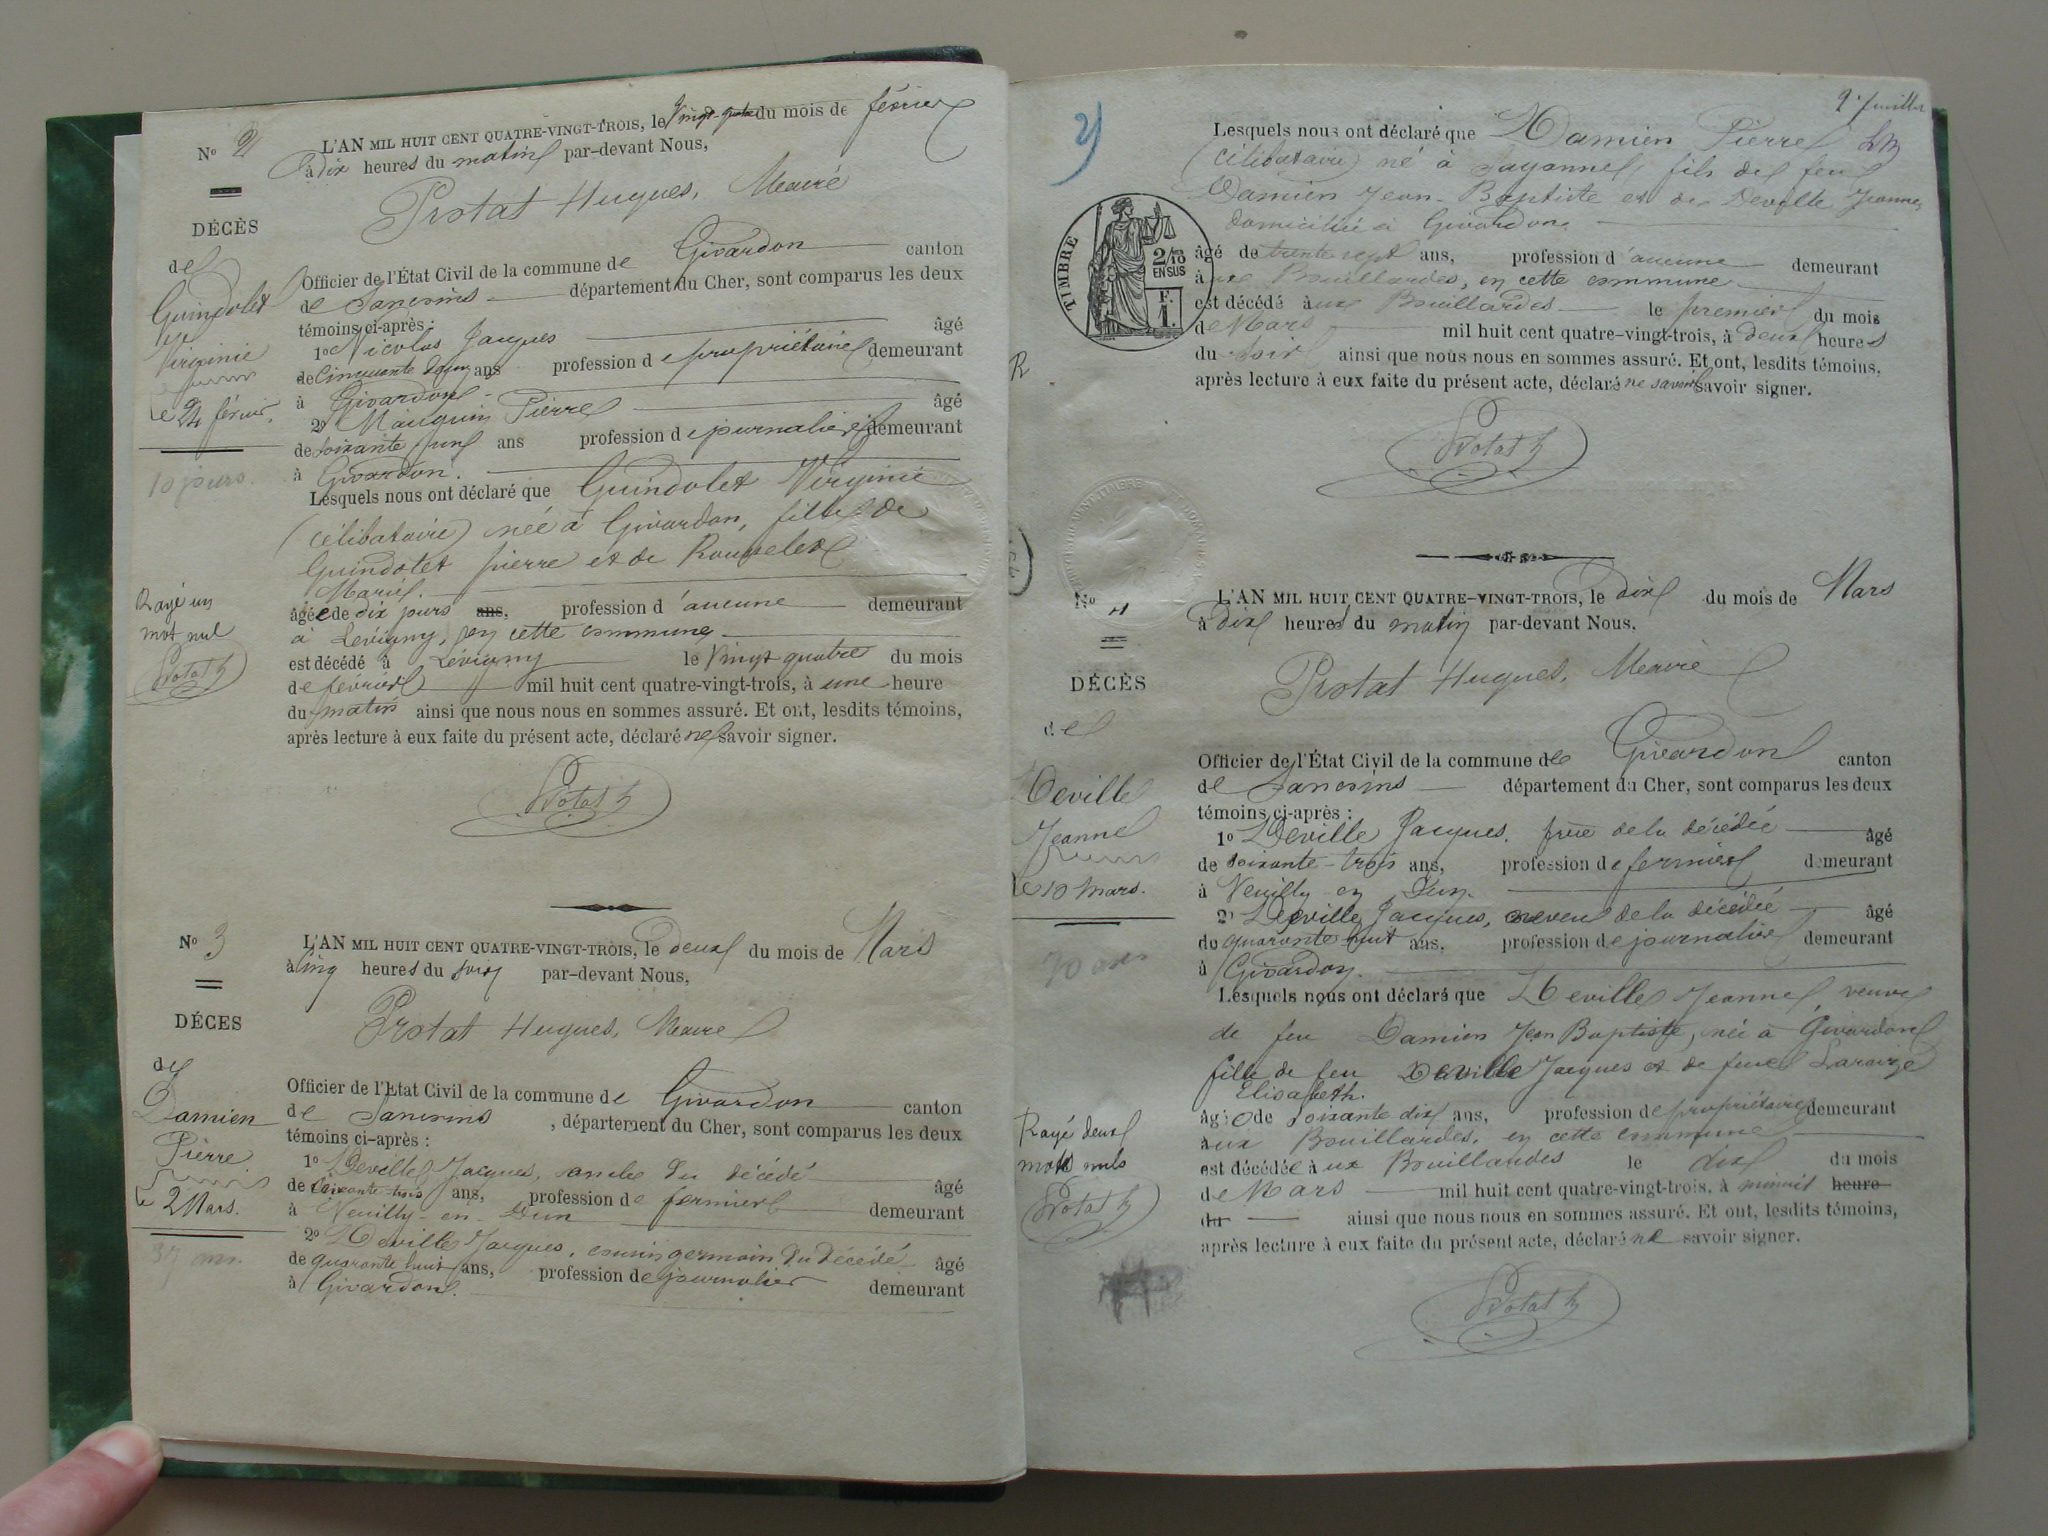 No 2
L'AN MIL HUIT CENT QUATRE-VINGT-TROIS, le Vingt-quatre du mois de février
à dix heures du matin par-devant Nous,
Protat Hugues, Maire
DÉCÈS
de
Guindolet
Virginie
le 24 février.
10 jours.
Officier de l'État Civil de la commune de Givardon canton
de Sancoins département du Cher, sont comparus les deux
témoins ci-après :
1o Nicolas Jacques âgé
de Cinquante ans profession de propriétaire demeurant
à Givardon
2o Mauguin Pierre âgé
de soixante un ans profession de journalier demeurant
à Givardon.
Lesquels nous ont déclaré que Guindolet Virginie
(célibataire) née à Givardon, fille de
Guindolet pierre et de
Marie.
âgée de dix jours ans, profession d'aucune demeurant
à Lévigny, en cette commune
est décédé à Lévigny le Vingt quatre du mois
de février mil huit cent quatre-vingt-trois, à une heure
du matin ainsi que nous nous en sommes assuré. Et ont, lesdits témoins,
après lecture à eux faite du présent acte, déclaré ne savoir signer.
Rayé un
mot nul
Protat h
Protat h
No 3
L'AN MIL HUIT CENT QUATRE-VINGT-TROIS, le deux du mois de Mars
à cinq heures du soir par-devant Nous,
Protat Hugues, Maire
DÉCES
de
Damien
Pierre
le 2 Mars.
37 ans.
Officier de l'Etat Civil de la commune de Givardon canton
de Sancoins , département du Cher, sont comparus les deux
témoins ci-après :
1o Deville Jacques, oncle du décédé âgé
de soixante-trois ans, profession de fermier demeurant
à Neuilly-en-Dun
2o Deville Jacques, cousin germain du décédé âgé
de quarante huit ans, profession de journalier demeurant
à Givardon.
2e feuillet
2
Lesquels nous ont déclaré que Damien Pierre
(célibataire) né à Sagonne, fils de feu
Damien Jean-Baptiste et de Deville Jeanne,
domiciliée à Givardon.
TIMBRE
2/10
EN SUS
F.
1.
âgé de trente sept ans, profession d'aucune demeurant
aux Bouillardes, en cette commune
est décédé aux Bouillardes le premier du mois
de Mars mil huit cent quatre-vingt-trois, à deux heures
du soir ainsi que nous nous en sommes assuré. Et ont, lesdits témoins,
après lecture à eux faite du présent acte, déclaré ne savoir savoir signer.
Protat h
No 4
L'AN MIL HUIT CENT QUATRE-VINGT-TROIS, le dix du mois de Mars
à dix heures du matin par-devant Nous,
Protat Hugues, Maire
DÉCÈS
de
Deville
Jeanne
le 10 Mars.
70 ans
Officier de l'État Civil de la commune de Givardon canton
de Sancoins département du Cher, sont comparus les deux
témoins ci-après :
1o Deville Jacques, frère de la décédée âgé
de soixante-trois ans, profession de fermier demeurant
à Neuilly en Dun.
2o Deville Jacques, neveu de la décédée âgé
de quarante huit ans, profession de journalier demeurant
à Givardon.
Lesquels nous ont déclaré que Deville Jeanne, veuve
de feu Damien Jean Baptiste, née à Givardon
fille de feu Deville Jacques et de feue
Elisabeth.
âgée de soixante dix ans, profession de propriétaire demeurant
aux Bouillardes, en cette commune
est décédée aux Bouillardes le dix du mois
de Mars mil huit cent quatre-vingt-trois, à minuit heure
du ainsi que nous nous en sommes assuré. Et ont, lesdits témoins,
après lecture à eux faite du présent acte, déclaré ne savoir signer.
Rayé deux
mots nuls
Protat h
Protat h